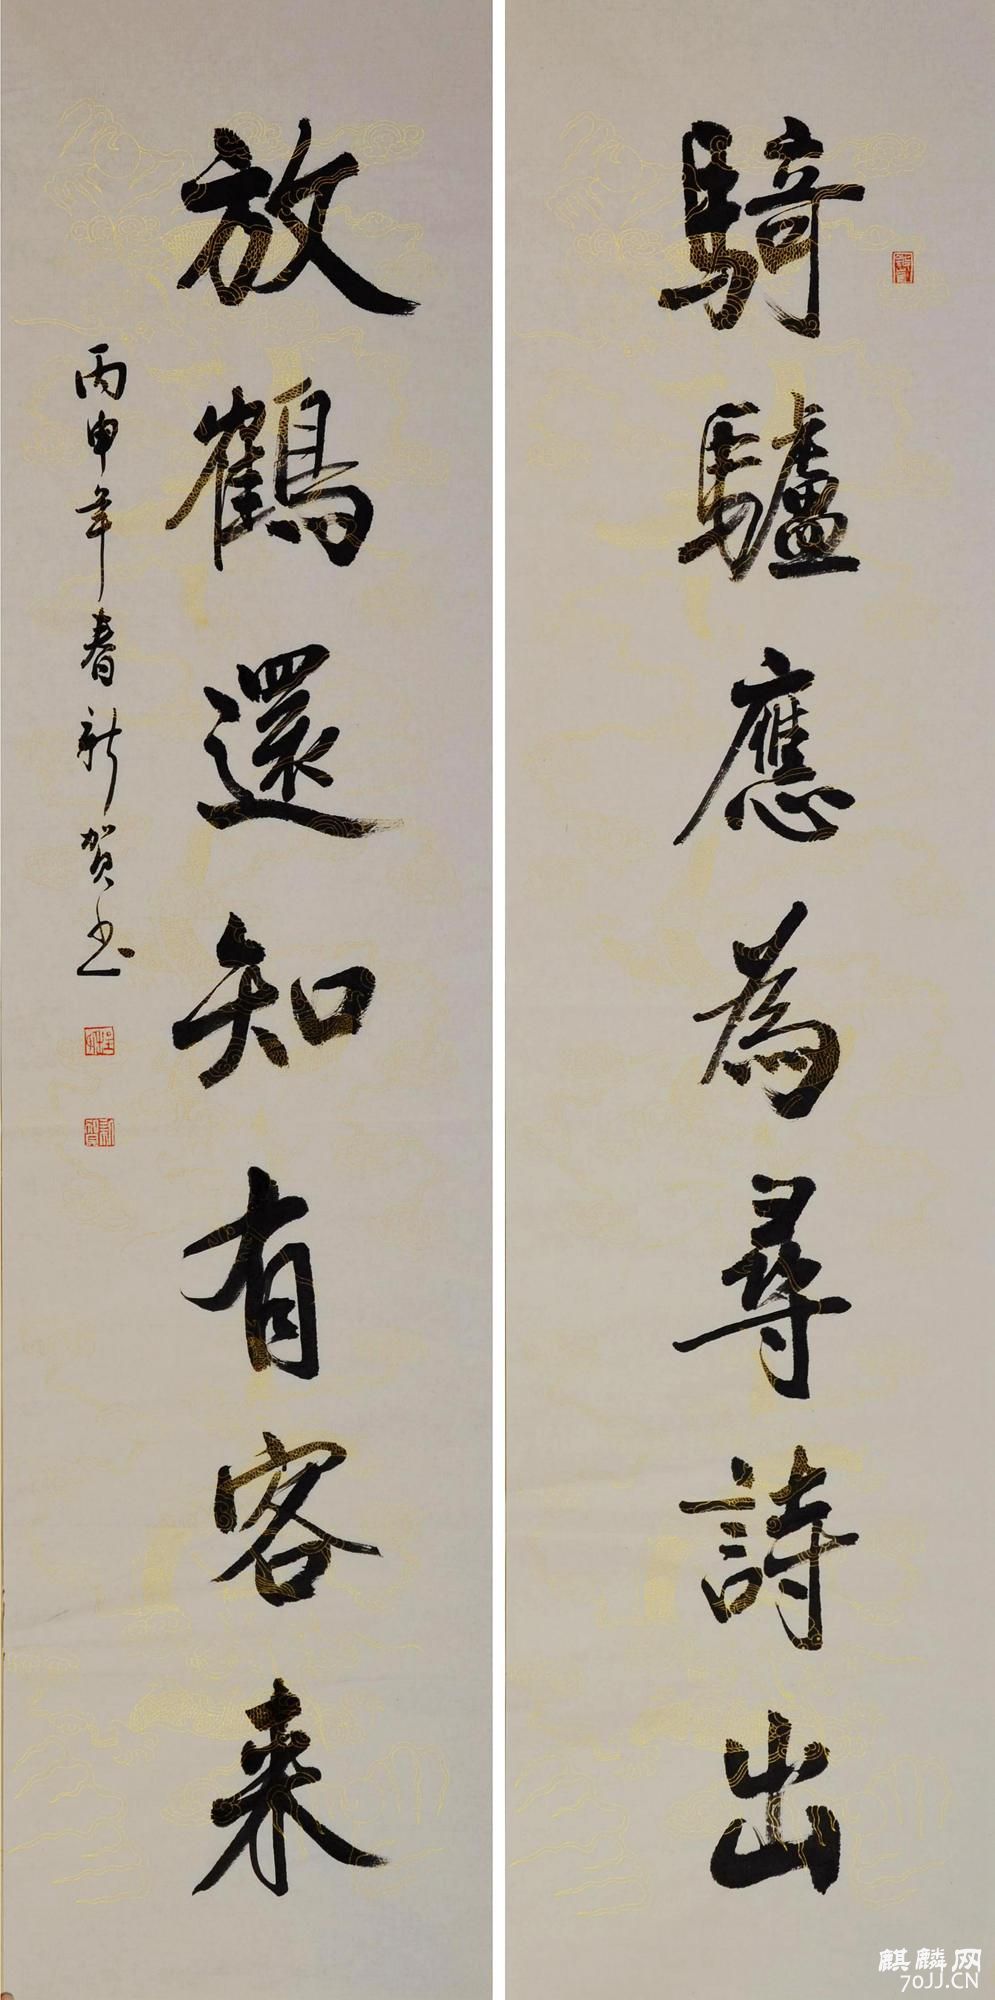 騎驢應為尋詩出
放鶴還知有客来
丙申年春新贺书
麒麟网
70JJ.CN